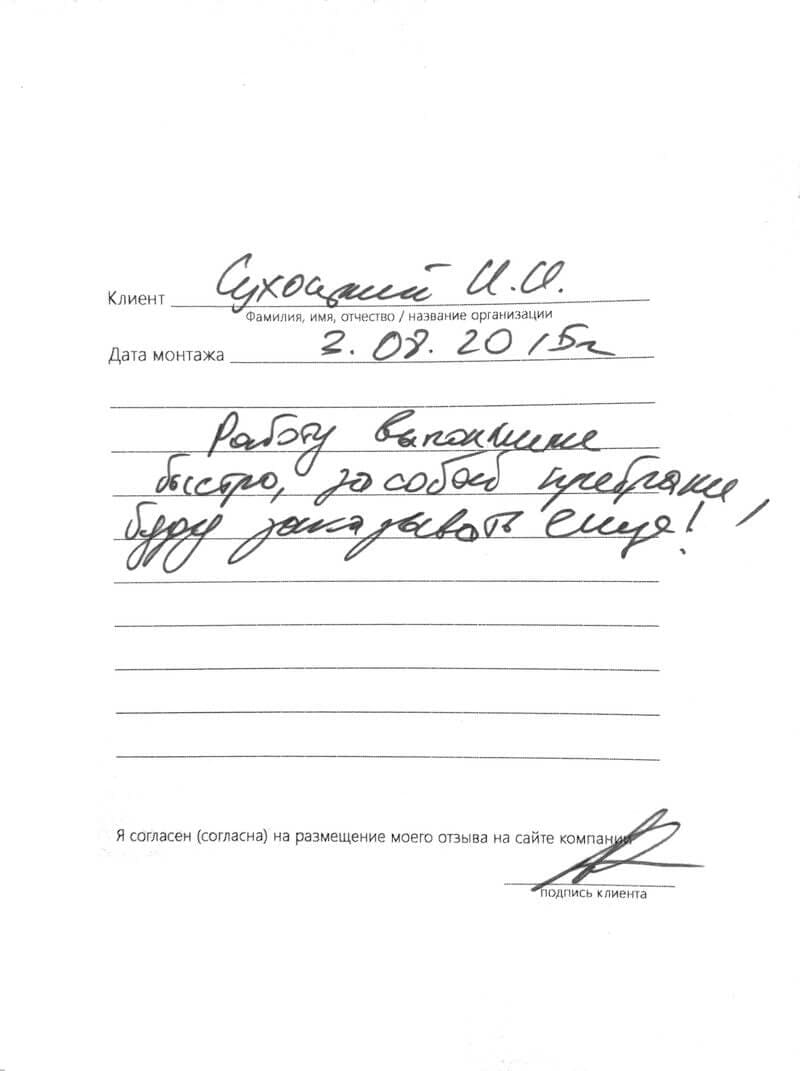 Клиент Сухоцкий И.И.
Фамилия, имя, отчество / название организации
Дата монтажа 3.08.2015г
Работу выполнили
быстро, за собой прибрали,
буду заказывать еще!
Я согласен (согласна) на размещение моего отзыва на сайте компании
подпись клиента